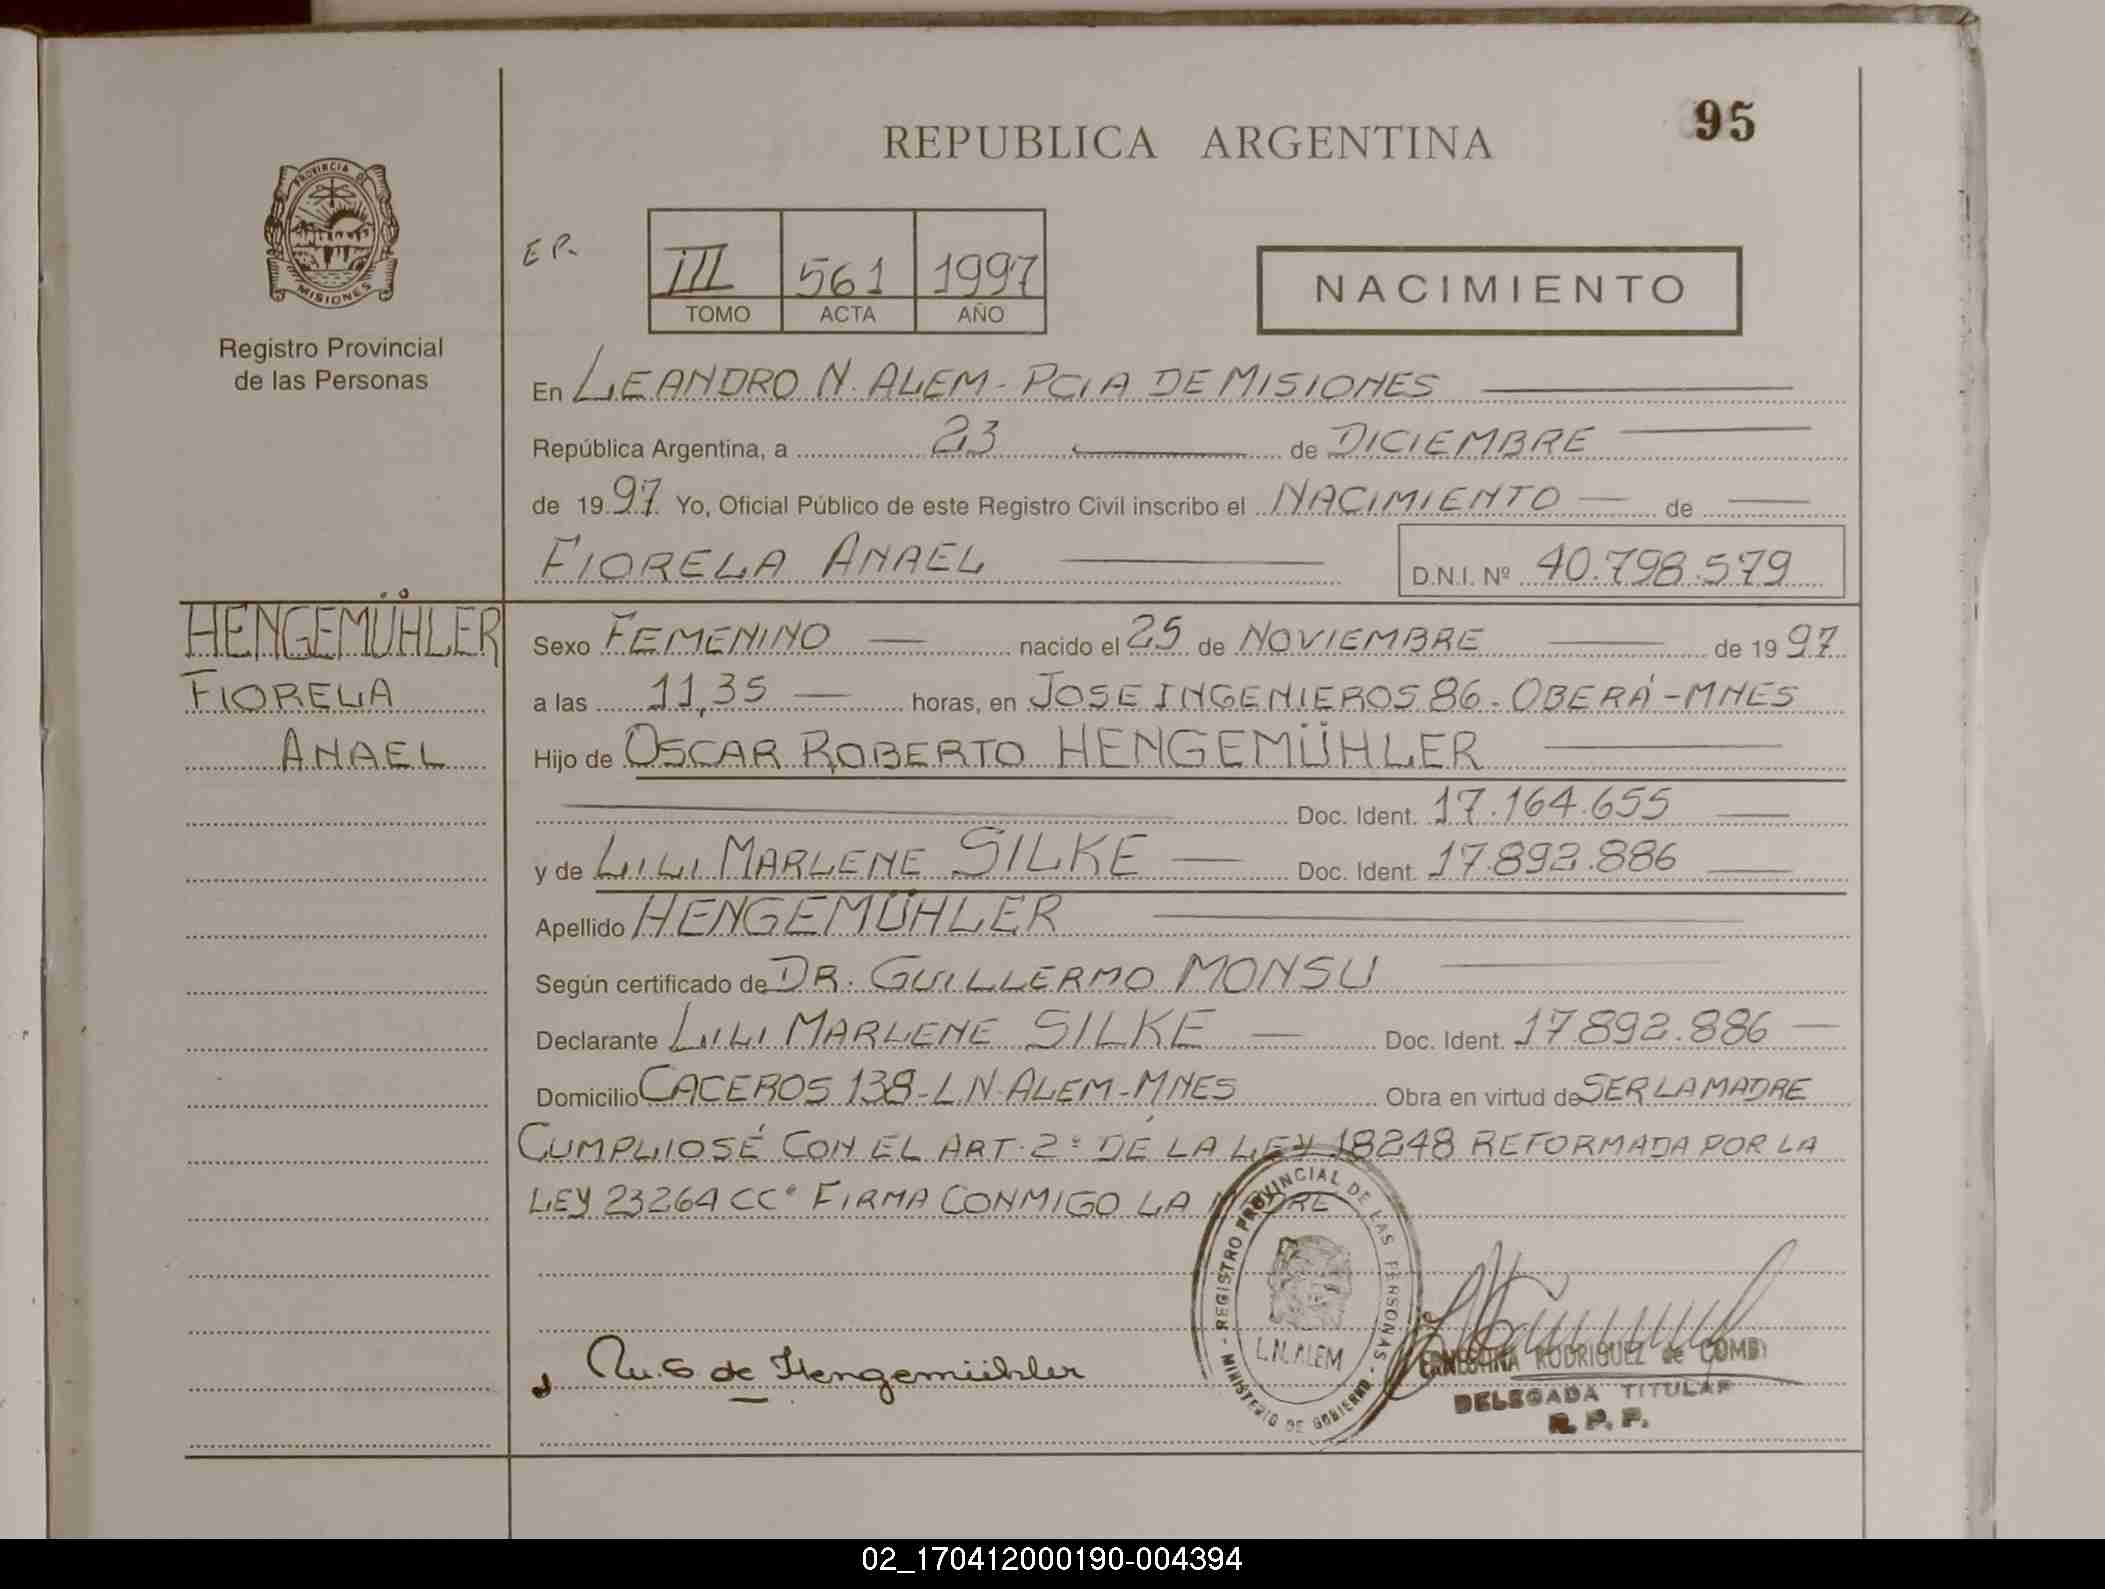 95
REPUBLICA ARGENTINA
PROVINCIA DE
MISIONES
Registro Provincial
de las Personas
E P.
III 561 1997
TOMO ACTA AÑO
NACIMIENTO
En LEANDRO N. ALEM - PCIA DE MISIONES
República Argentina, a 23 de DICIEMBRE
de 1997 Yo, Oficial Público de este Registro Civil inscribo el NACIMIENTO de
FIORELA ANAEL D.N.I. Nº 40.798.579
HENGEMÜHLER
FIORELA
ANAEL
Sexo FEMENINO nacido el 25 de NOVIEMBRE de 1997
a las 11,35 horas, en JOSE INGENIEROS 86 - OBERÁ - MNES
Hijo de OSCAR ROBERTO HENGEMÜHLER
Doc. Ident. 17.164.655
y de LILI MARLENE SILKE Doc. Ident. 17.892.886
Apellido HENGEMÜHLER
Según certificado de DR. GUILLERMO MONSU
Declarante LILI MARLENE SILKE Doc. Ident. 17892.886
Domicilio CACEROS 138 - L.N. ALEM - MNES Obra en virtud de SER LA MADRE
CUMPLIOSÉ CON EL ART. 2º DE LA LEY 18248 REFORMADA POR LA
LEY 23264 CCº FIRMA CONMIGO LA MADRE
REGISTRO PROVINCIAL DE LAS PERSONAS - MINISTERIO DE GOBIERNO -
L.N. ALEM
de Hengemühler
RODRIGUEZ de
DELEGADA TITULAR
R. P. P.
02_170412000190-004394